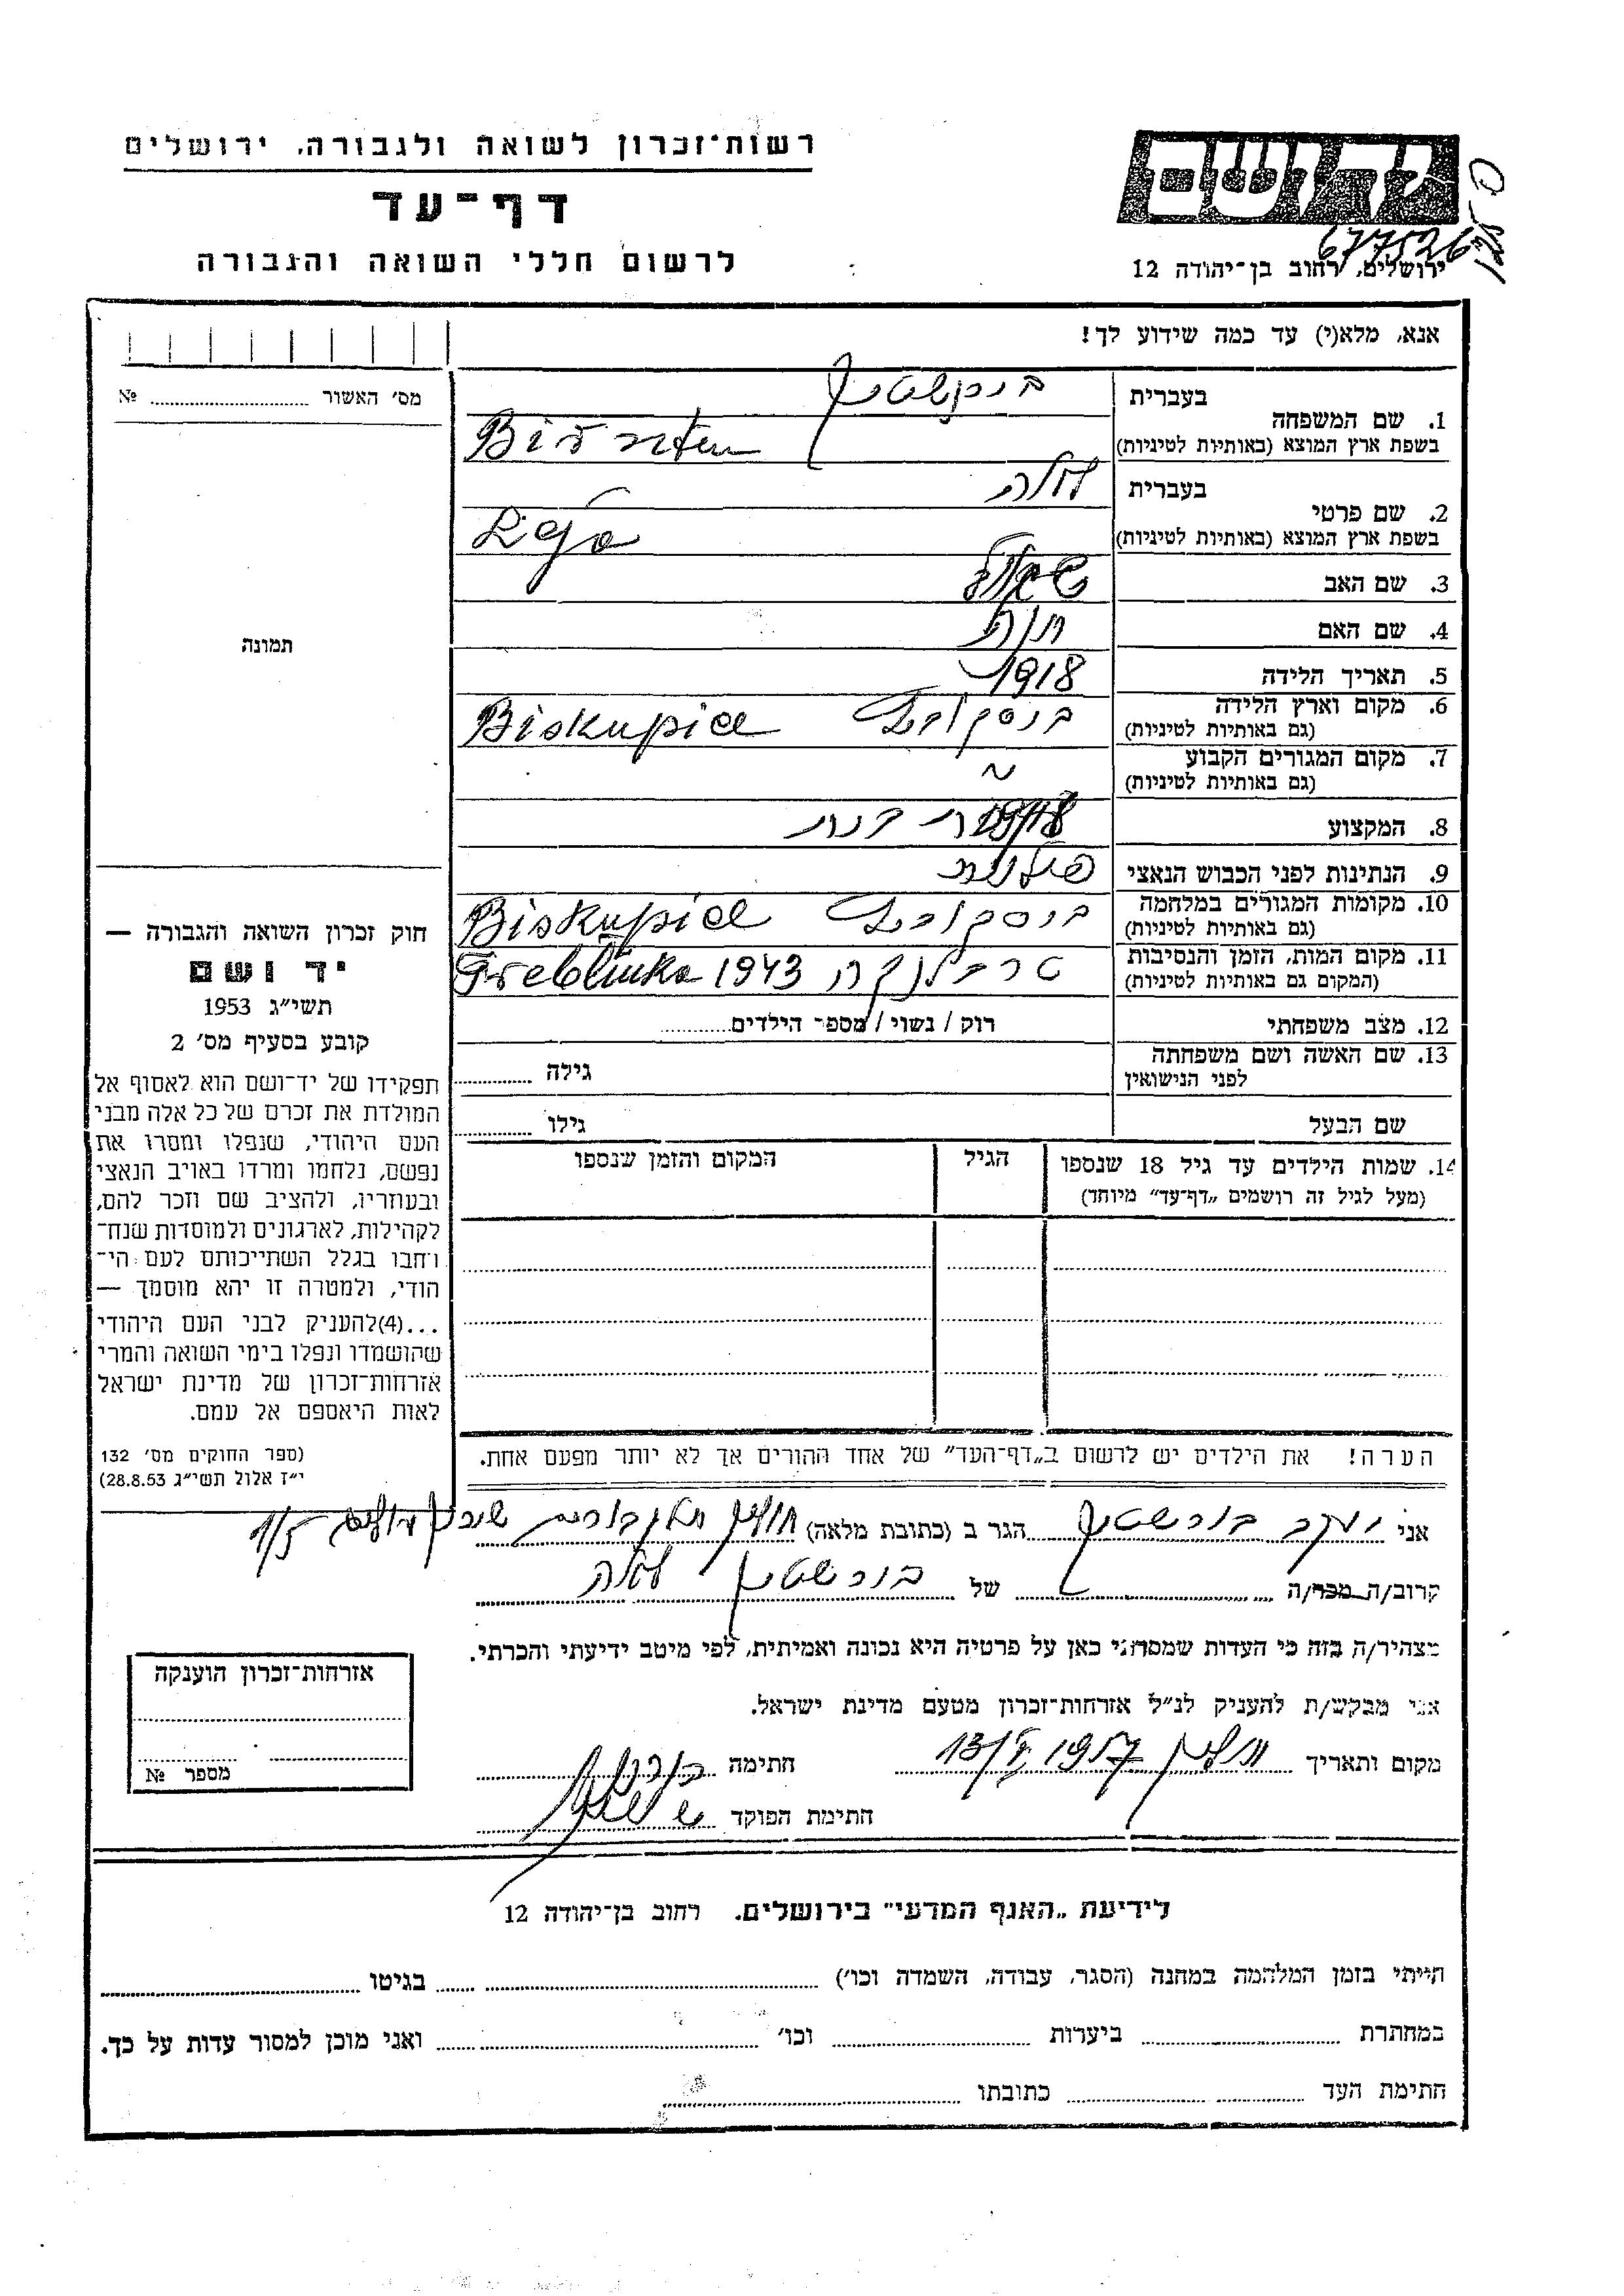 רשות־זכרון לשואה ולגבורה, ירושלים
דף־עד
לרשום חללי השואה והגבורה
יד ושם
677526
ירושלים, רחוב בן־יהודה 12
אנא, מלא(י) עד כמה שידוע לך!
מס׳ האשור № 
תמונה
1. שם המשפחה
בעברית
בשפת ארץ המוצא (באותיות לטיניות)
2. שם פרטי
בעברית לאה
בשפת ארץ המוצא (באותיות לטיניות) Leja
3. שם האב
4. שם האם חנה
5. תאריך הלידה 1918
6. מקום וארץ הלידה
(גם באותיות לטיניות) Biskupice
7. מקום המגורים הקבוע
(גם באותיות לטיניות) "
8. המקצוע
9. הנתינות לפני הכבוש הנאצי פולנית
10. מקומות המגורים במלחמה
(גם באותיות לטיניות) Biskupice
11. מקום המות, הזמן והנסיבות
(המקום גם באותיות לטיניות) טרבלינקה 1943 Treblinka
12. מצב משפחתי רוק / נשוי / מספר הילדים
13. שם האשה ושם משפחתה
לפני הנישואין גילה
שם הבעל גילו
14. שמות הילדים עד גיל 18 שנספו
(מעל לגיל זה רושמים „דף־עד״ מיוחד)
הגיל
המקום והזמן שנספו
הערה! את הילדים יש לרשום ב„דף־העד״ של אחד ההורים אך לא יותר מפעם אחת.
חוק זכרון השואה והגבורה —
יד ושם
תשי״ג 1953
קובע בסעיף מס׳ 2
תפקידו של יד־ושם הוא לאסוף אל
המולדת את זכרם של כל אלה מבני
העם היהודי, שנפלו ומסרו את
נפשם, נלחמו ומרדו באויב הנאצי
ובעוזריו, ולהציב שם וזכר להם,
לקהילות, לארגונים ולמוסדות שנח־
רחבו בגלל השתייכותם לעם הי־
הודי, ולמטרה זו יהא מוסמך —
...(4)להעניק לבני העם היהודי
שהושמדו ונפלו בימי השואה והמרי
אזרחות־זכרון של מדינת ישראל
לאות היאספם אל עמם.
(ספר החוקים מס׳ 132
י״ז אלול תשי״ג 28.8.53)
אני יעקב בורשטין הגר ב (כתובת מלאה) חולון 1/5
קרוב/ה מכר/ה של בורשטין לאה
מצהיר/ה בזה כי העדות שמסרתי כאן על פרטיה היא נכונה ואמיתית, לפי מיטב ידיעתי והכרתי.
אני מבקש/ת להעניק לנ״ל אזרחות־זכרון מטעם מדינת ישראל.
מקום ותאריך חולון 1957 חתימה
חתימת הפוקד
אזרחות־זכרון הוענקה
מספר №
לידיעת „האגף המדעי״ בירושלים. רחוב בן־יהודה 12
הייתי בזמן המלחמה במחנה (הסגר, עבודה, השמדה וכו׳) בגיטו
במחתרת ביערות וכו׳ ואני מוכן למסור עדות על כך.
חתימת העד כתובתו